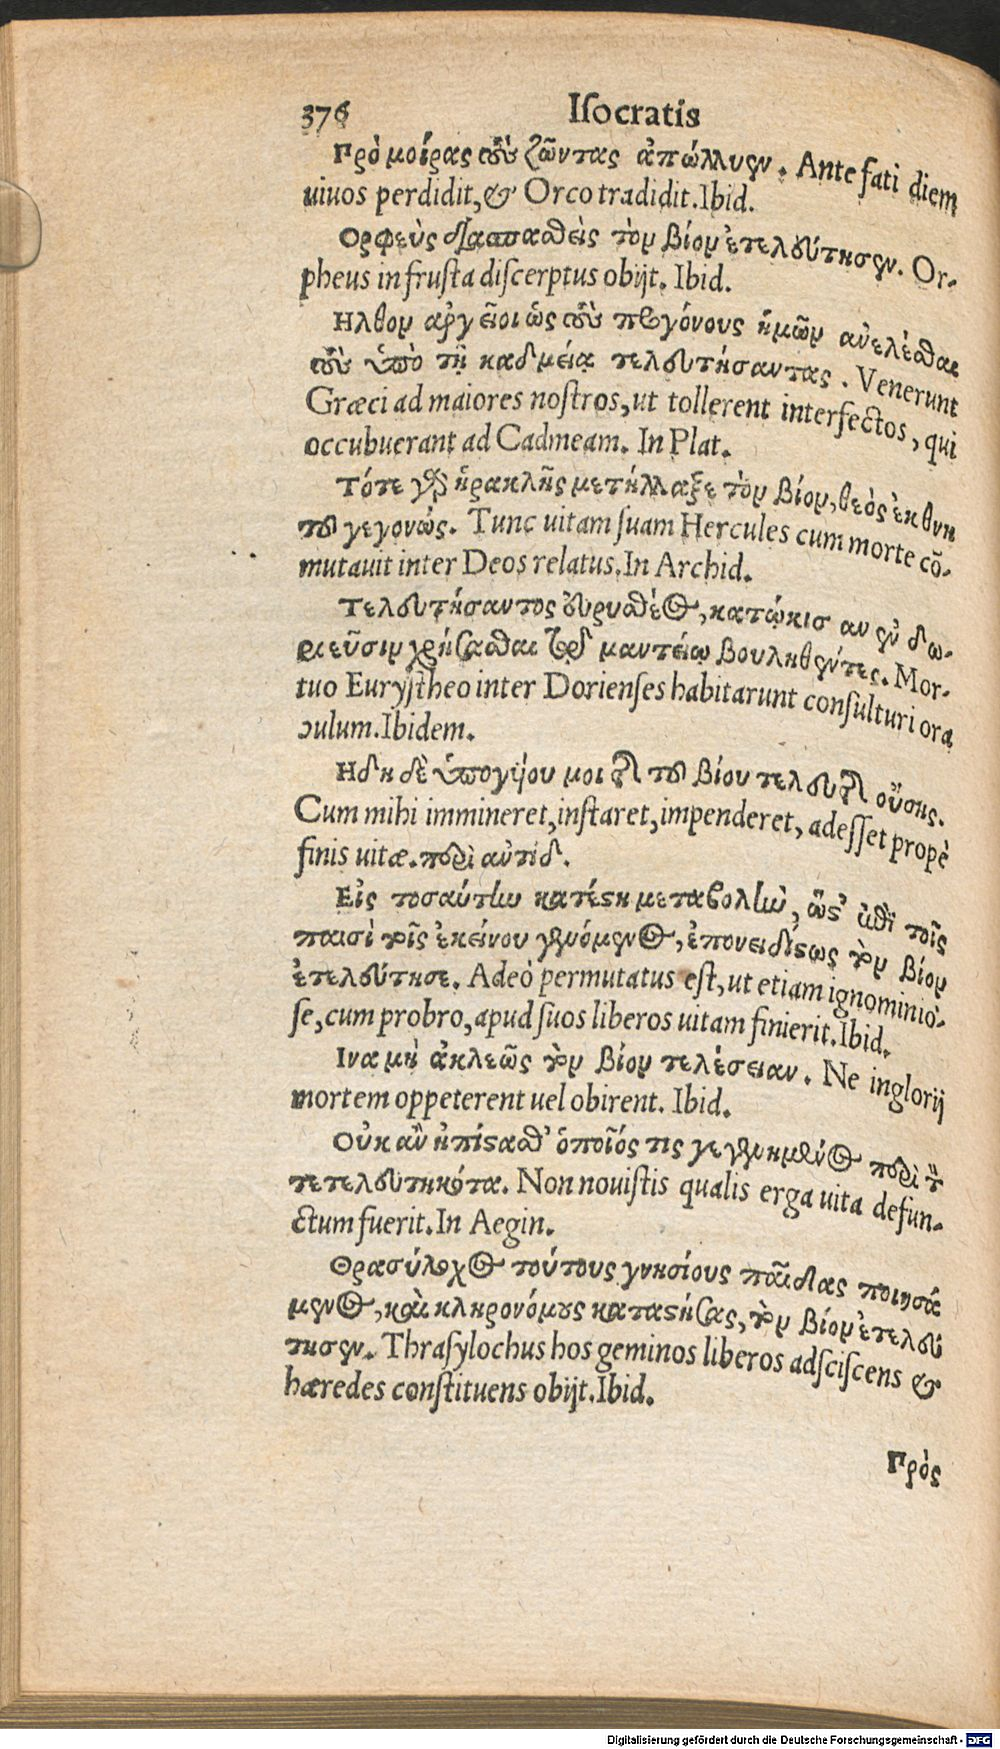 376 Iſocratis
Πρὸ μοίρας τοὺς ζῶντας ἀπώλλυεν. Ante fati diem
uiuos perdidit, & Orco tradidit. Ibid.
Ορφεὺς διασπασθεὶς τὸν βίον ἐτελεύτησεν. Or-
pheus in fruſta diſcerptus obijt. Ibid.
Ηλθον ἀργεῖοι ὡς τοὺς προγόνους ἡμῶν ἀνελέσθαι
τοὺς ὑπὸ τῇ καδμείᾳ τελευτήσαντας. Venerunt
Græci ad maiores noſtros, ut tollerent interfectos, qui
occubuerant ad Cadmeam. In Plat.
Τότε γὰρ ἡρακλῆς μετήλλαξε τὸν βίον, θεὸς ἐκ θνη
τοῦ γεγονώς. Tunc uitam ſuam Hercules cum morte cō-
mutauit inter Deos relatus. In Archid.
Τελευτήσαντος εὐρυσθέως, κατῴκισ αν ἐν δω-
ριεῦσιν χρήσασθαι τῷ μαντείῳ βουληθέντες. Mor-
tuo Euryſtheo inter Dorienſes habitarunt conſulturi ora
culum. Ibidem.
Ηδη δὲ ὑπογύου μοι τῆς τοῦ βίου τελευτῆς οὔσης.
Cum mihi immineret, inſtaret, impenderet, adeſſet propè
finis uitæ. περὶ αὐτιδ.
Εἰς τοσαύτην κατέστη μεταβολὴν, ὥστ' ἐπὶ τοῖς
παισὶ τοῖς ἐκείνου γενόμενος, ἐπονειδίστως τὸν βίον
ἐτελεύτησε. Adeò permutatus eſt, ut etiam ignominiò-
ſe, cum probro, apud ſuos liberos uitam finierit. Ibid.
Ινα μὴ ἀκλεῶς τὸν βίον τελέσειαν. Ne inglorij
mortem oppeterent uel obirent. Ibid.
Οὐκ ἂν ἠπίστασθ' ὁποῖός τις γεγενημένος περὶ τὸν
τετελευτηκότα. Non nouiſtis qualis erga uita defun-
ctum fuerit. In Aegin.
Θρασύλοχος τούτους γνησίους παῖδας ποιησά
μενος, καὶ κληρονόμους καταστήσας, τὸν βίον ἐτελεύ
τησεν. Thraſylochus hos geminos liberos adſciſcens &
hæredes conſtituens obijt. Ibid.
Πρὸς
Digitalisierung gefördert durch die Deutsche Forschungsgemeinschaft - DFG